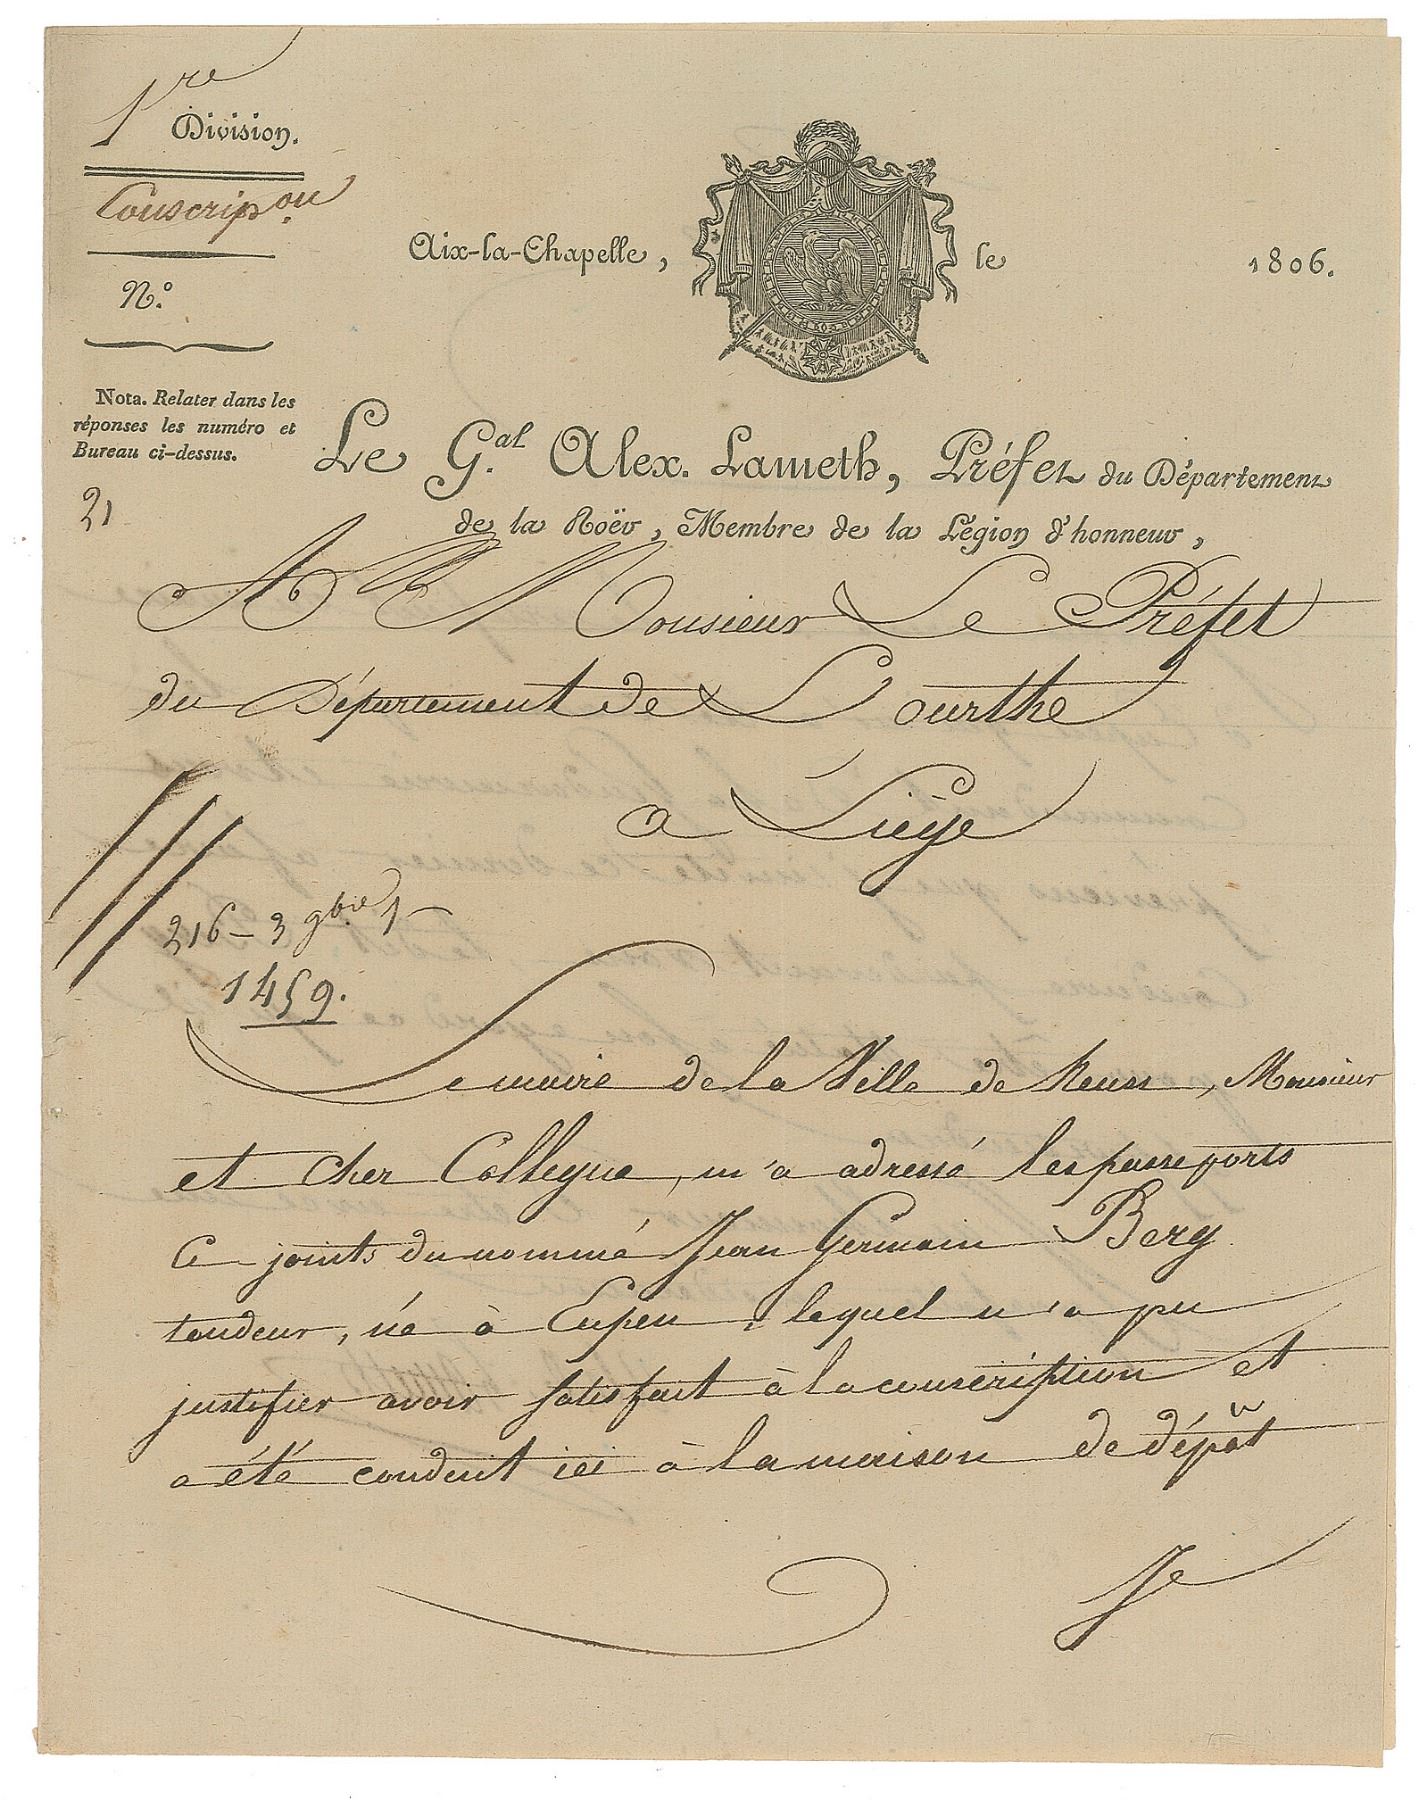 1re
Division.
Conscripon.
N.o
Nota. Relater dans les
réponses les numéro et
Bureau ci-dessus.
21
Aix-la-Chapelle, le 1806.
Le G.al Alex. Lameth, Préfet du Département
de la Roër, Membre de la Légion d'honneur,
A Monsieur Le Préfet
du Département de L'ourthe
a Liège
216 - 3 9bre
1459.
Le maire de la Ville de Neuss, Monsieur
et cher Collegue, m'a adressé les passeports
ci joints du nommé Jean Germain Berg
tondeur, né à Eupen, lequel n'a pu
justifier avoir satisfait à la conscription et
a été conduit ici à la maison de dépôt
Je